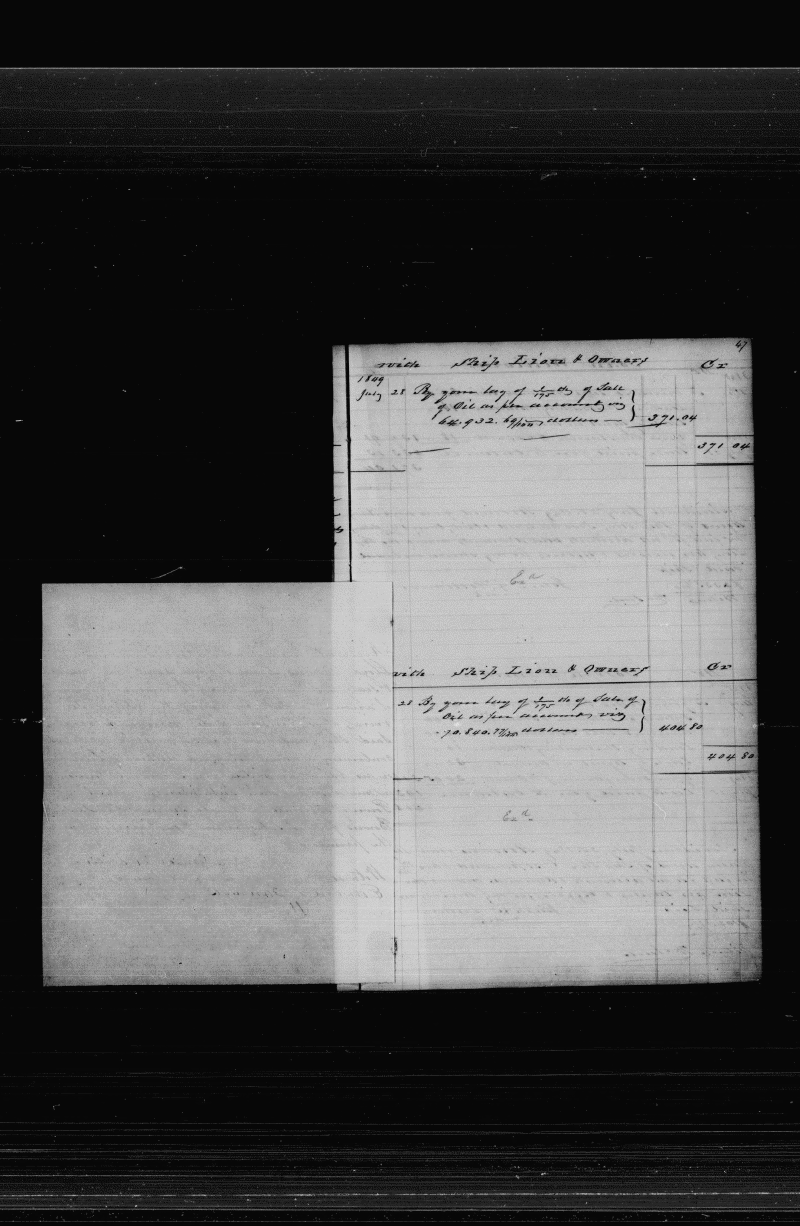 47
with Ship Lion & Owners Cr
1849
July 28 By your lay of 1/175 th of Sale
of Oil as per account viz
64.932.69/100 dollars — 371.04
371 04
Ex d
with Ship Lion & Owners Cr
28 By your lay of 1/175 th of Sale of
Oil as per account viz
70.840. dollars — 404 80
404 80
Ex d